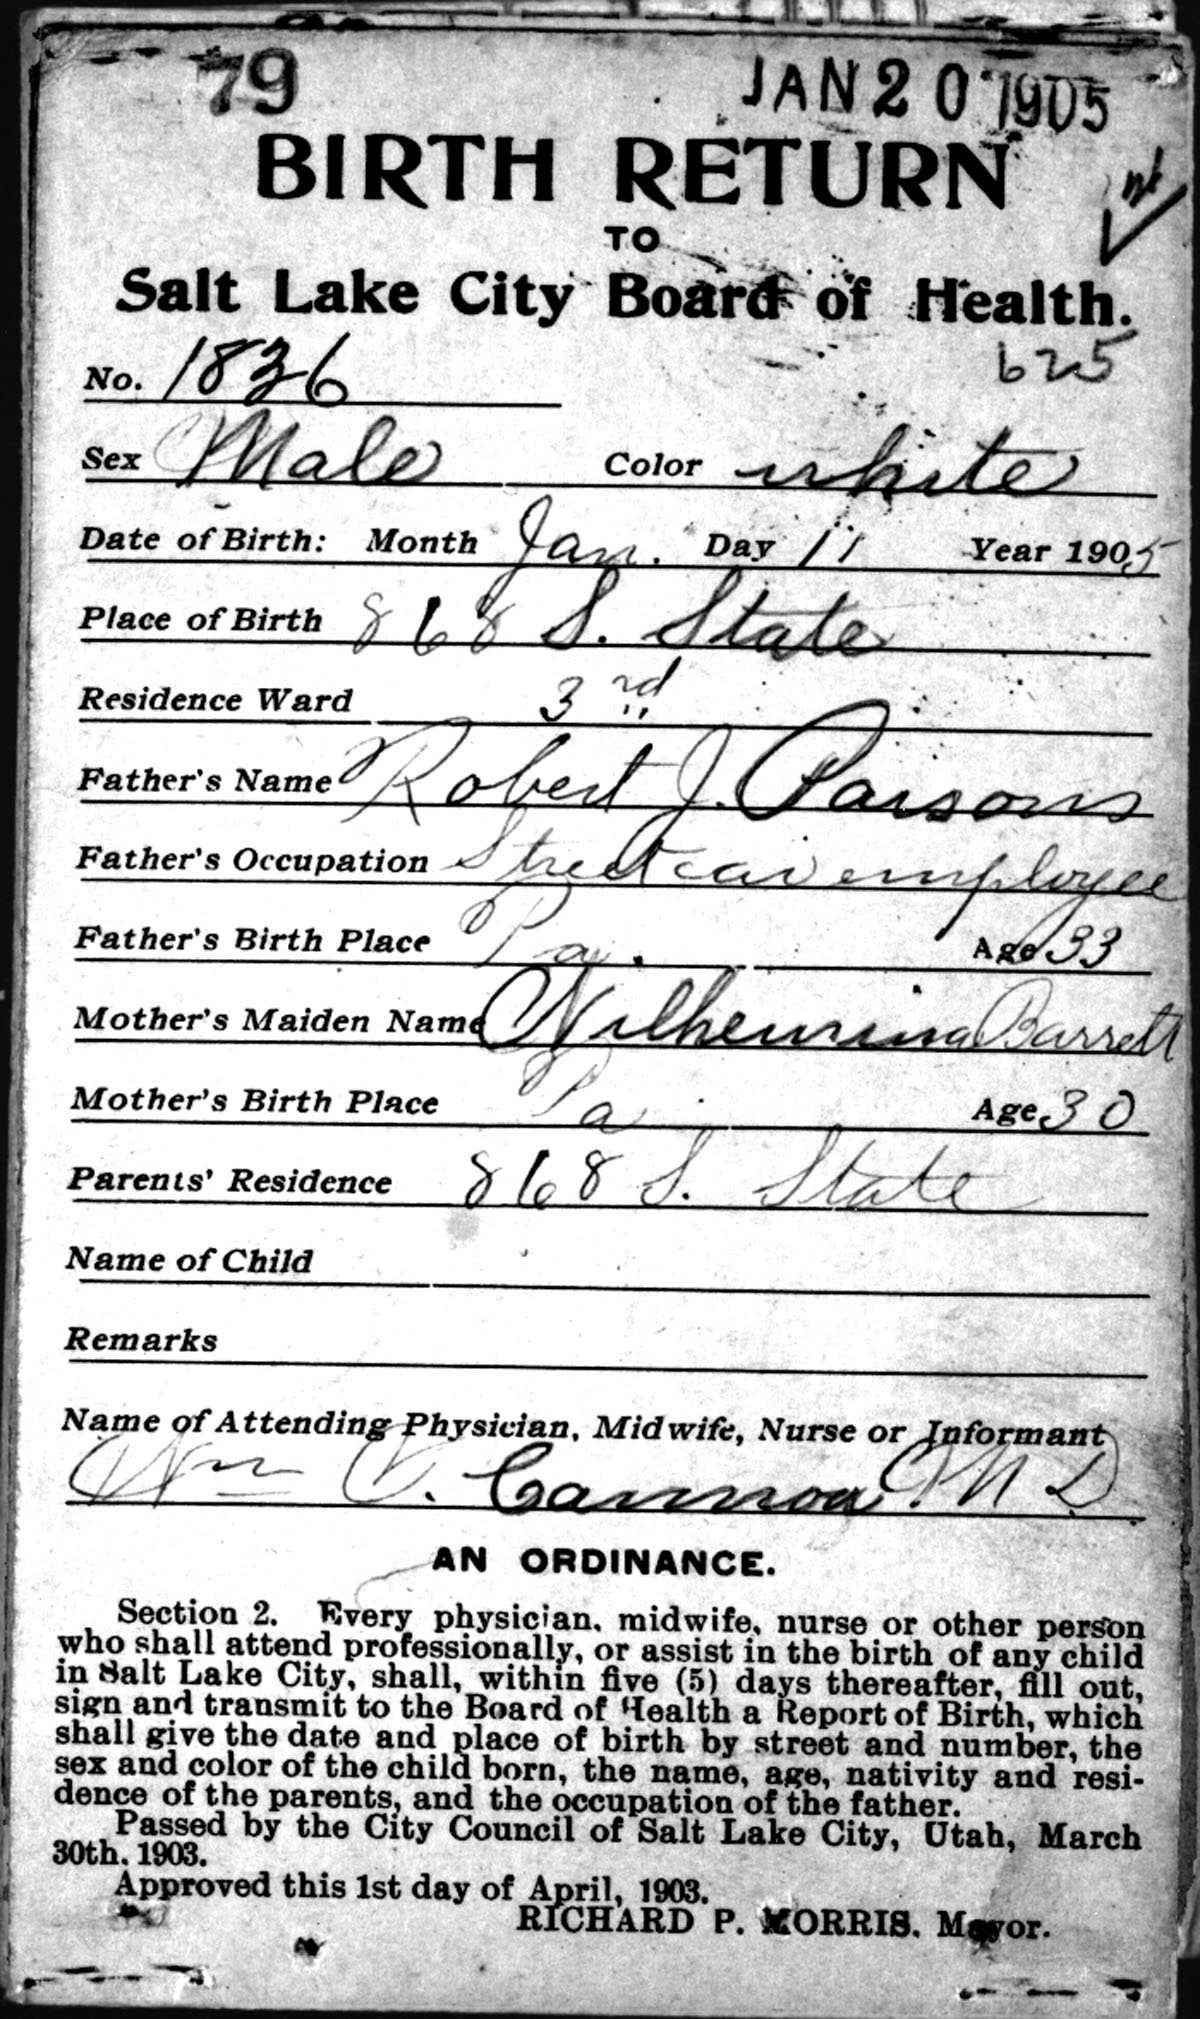 79 JAN 20 1905
BIRTH RETURN
TO
Salt Lake City Board of Health.
625
No. 1836
Sex Male Color white
Date of Birth: Month Jan. Day 11 Year 1905
Place of Birth 868 S. State
Residence Ward 3rd
Father's Name Robert J. Parsons
Father's Occupation Streetcar employee
Father's Birth Place Pa. Age 33
Mother's Maiden Name Wilhemina Barrett
Mother's Birth Place Pa Age 30
Parents' Residence 868 S. State
Name of Child
Remarks
Name of Attending Physician, Midwife, Nurse or Informant
Wm C. Cannon M D
AN ORDINANCE.
Section 2. Every physician, midwife, nurse or other person
who shall attend professionally, or assist in the birth of any child
in Salt Lake City, shall, within five (5) days thereafter, fill out,
sign and transmit to the Board of Health a Report of Birth, which
shall give the date and place of birth by street and number, the
sex and color of the child born, the name, age, nativity and resi-
dence of the parents, and the occupation of the father.
Passed by the City Council of Salt Lake City, Utah, March
30th, 1903.
Approved this 1st day of April, 1903.
RICHARD P. MORRIS, Mayor.